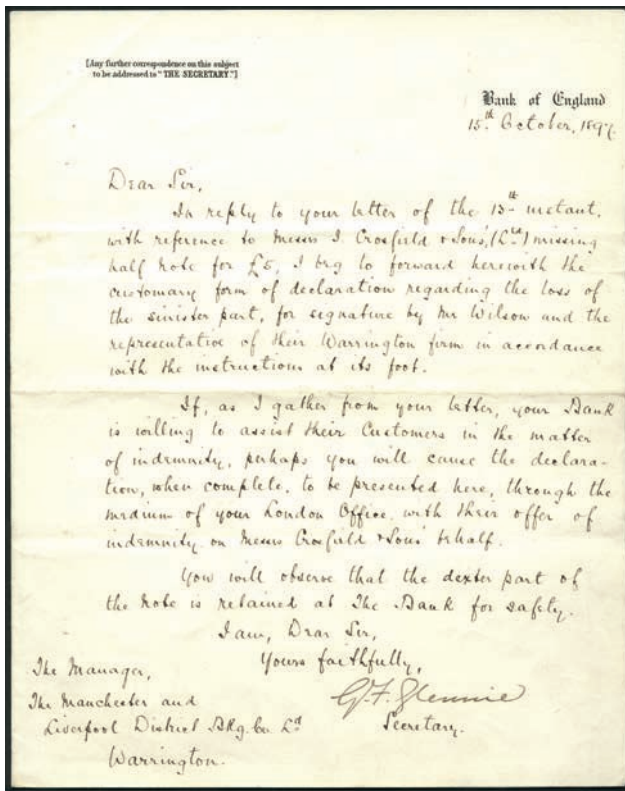 [Any further correspondence on this subject
to be addressed to "THE SECRETARY."]
Bank of England
15th October, 1897.
Dear Sir,
In reply to your letter of the 13th instant,
with reference to Messrs J. Crosfield & Sons', (Ltd) missing
half Note for £5, I beg to forward herewith the
customary form of declaration regarding the loss of
the sinister part, for signature by Mr Wilson and the
representative of their Warrington firm in accordance
with the instructions at its foot.
If, as I gather from your letter, your Bank
is willing to assist their Customers in the matter
of indemnity, perhaps you will cause the declara-
tion, when complete, to be presented here, through the
medium of your London Office, with their offer of
indemnity on Messrs Crosfield & Sons' behalf.
You will observe that the dexter part of
the Note is retained at The Bank for safety.
I am, Dear Sir,
Yours faithfully,
G. F. Glennie
Secretary.
The Manager,
The Manchester and
Liverpool District Bkg. Co Ld
Warrington.